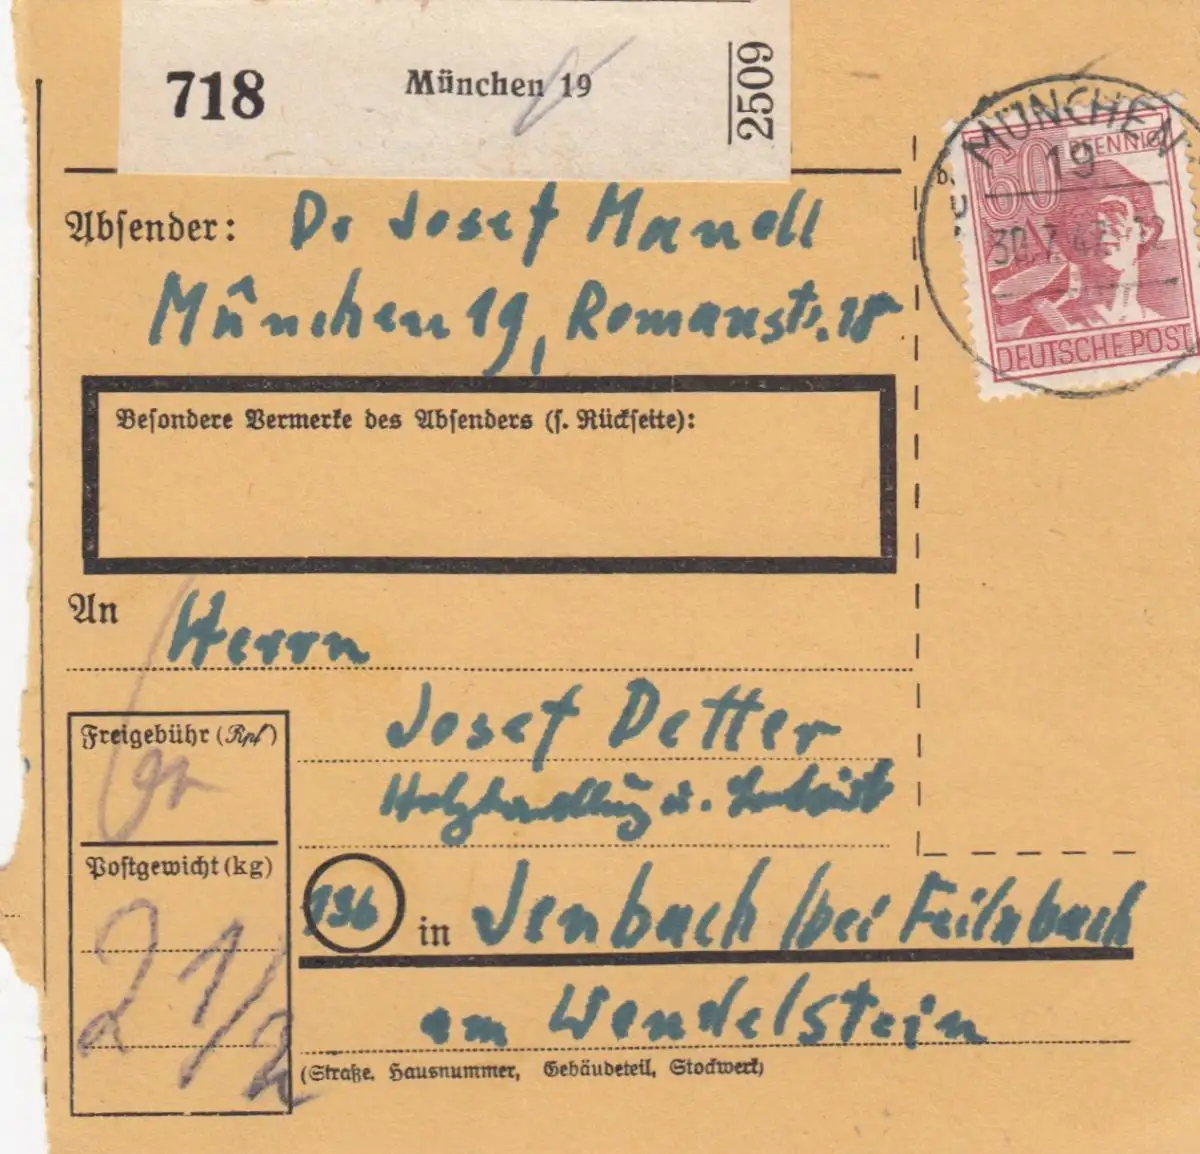 718
München 19
2509
MÜNCHEN
19
30.7.4
60 PFENNIG
DEUTSCHE POST
Absender: Dr Josef Mandl
München 19, Romanstr. 18
Besondere Vermerke des Absenders (s. Rückseite):
An Herrn
Josef Detter
Holzhandlung u.
Freigebühr (Rpf)
60
Postgewicht (kg)
2 1/2
13b in Jenbach / bei Feilnbach
am Wendelstein
(Straße, Hausnummer, Gebäudeteil, Stockwerk)